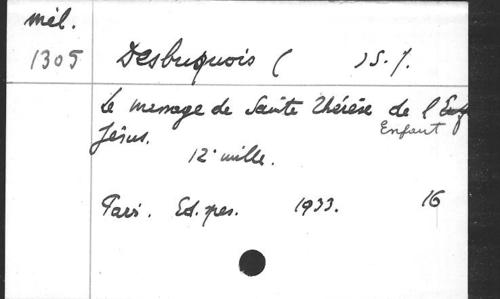 mél.
1305 Desbuquois ( ) S. J.
Le message de Sainte Thérèse de l'Enf
Enfant
Jésus.
12e mille.
Paris. Ed. spes. 1933. 16